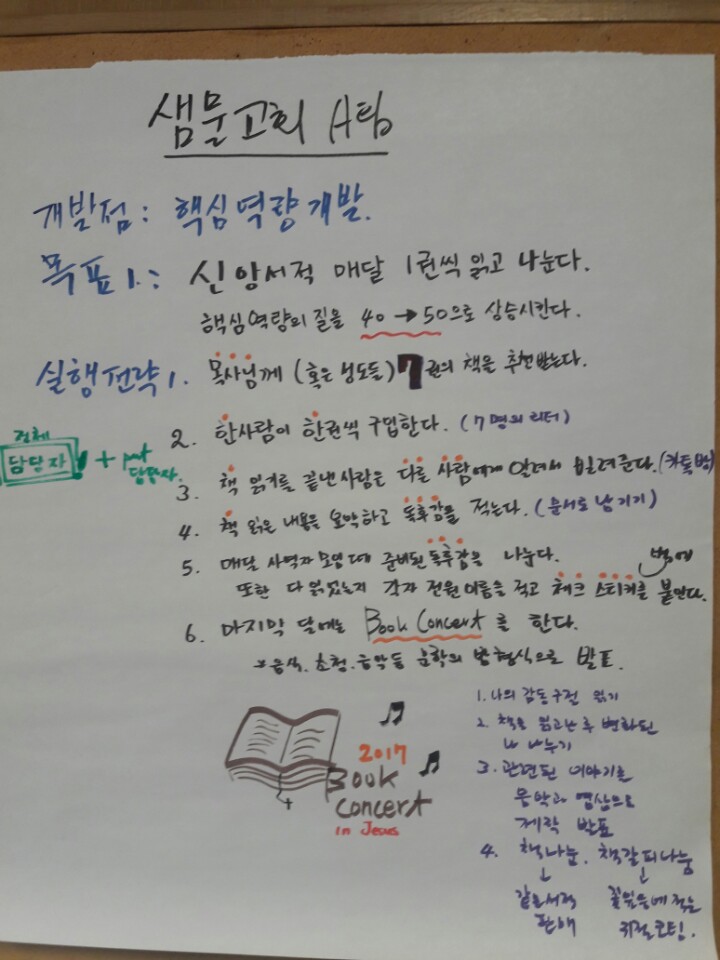 샘물교회 A팀
개발점: 핵심역량개발.
목표1.: 신앙서적 매달 1권씩 읽고 나눈다.
핵심역량의 질을 40→50으로 상승시킨다.
실행전략1. 목사님께 (혹은 성도들) 7권의 책을 추천받는다.
2. 한사람이 한권씩 구입한다. (7명의 리더)
전체
담당자 + 담당자.
3. 책 읽기를 끝낸사람은 다음 사람에게 알려서 빌려준다. (카톡방)
4. 책 읽은 내용을 요약하고 독후감을 적는다. (문서로 남기기)
5. 매달 사역자 모임때 준비된 독후감을 나눈다.
또한 다 읽었는지 각자 전원이름을 적고 체크 스티커를 벽에 붙인다.
6. 마지막 달에는 Book Concert를 한다.
*음식.초청.음악등 문학의 밤형식으로 발표.
2017
Book
Concert
in Jesus
1. 나의 감동구절 읽기
2. 책을 읽고난 후 변화된
나 나누기
3. 관련된 이야기를
음악과 영상으로
제작 발표
4. 책나눔. 책갈피나눔
↓ ↓
같은서적 꽃잎등에 적은
판매 귀절코팅.